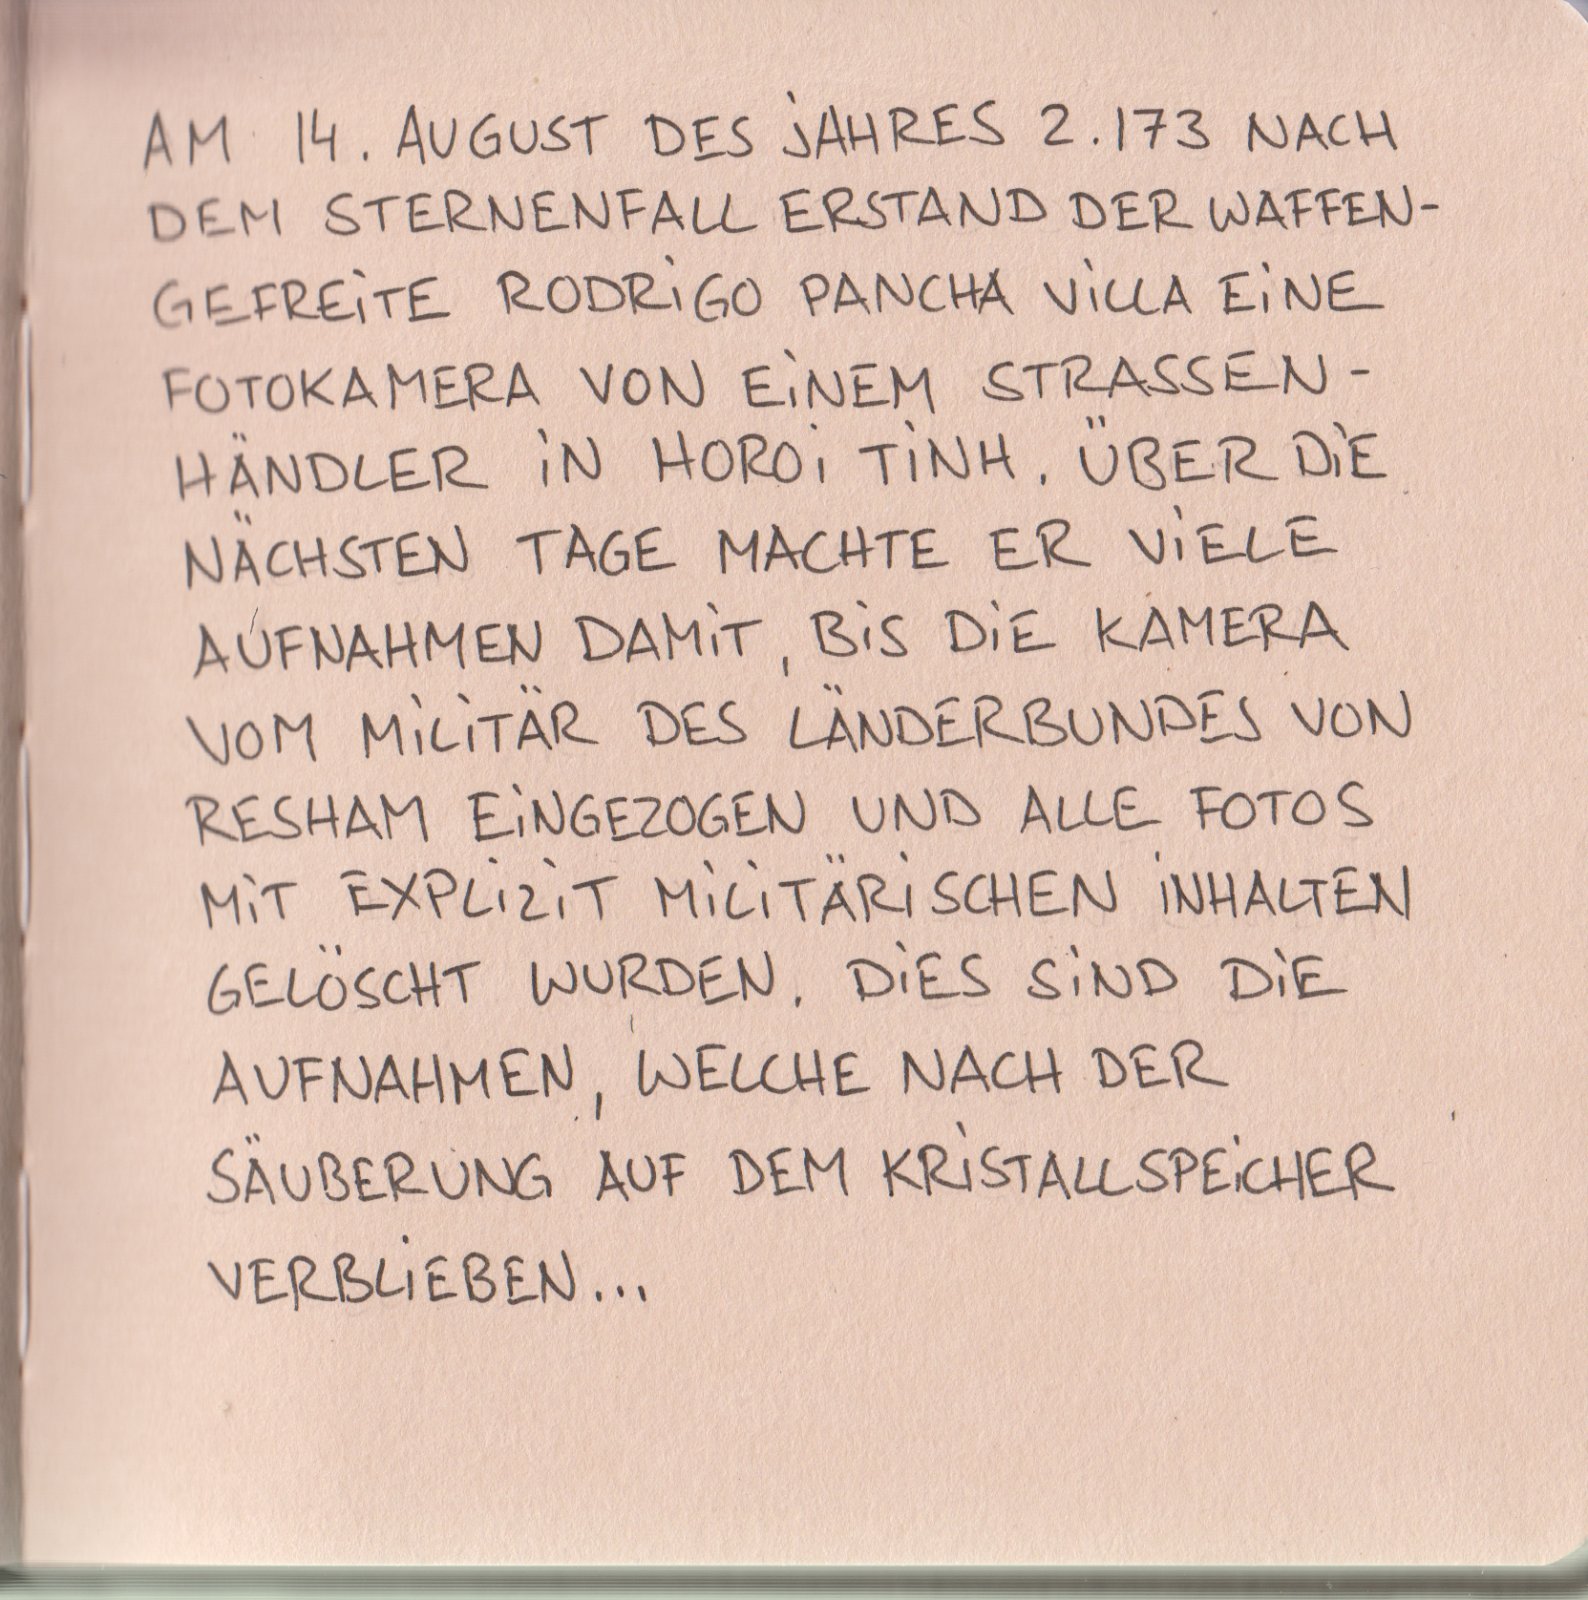 AM 14. AUGUST DES JAHRES 2.173 NACH
DEM STERNENFALL ERSTAND DER WAFFEN-
GEFREITE RODRIGO PANCHA VILLA EINE
FOTOKAMERA VON EINEM STRASSEN-
HÄNDLER IN HOROI TINH. ÜBER DIE
NÄCHSTEN TAGE MACHTE ER VIELE
AUFNAHMEN DAMIT, BIS DIE KAMERA
VOM MILITÄR DES LÄNDERBUNDES VON
RESHAM EINGEZOGEN UND ALLE FOTOS
MIT EXPLIZIT MILITÄRISCHEN INHALTEN
GELÖSCHT WURDEN. DIES SIND DIE
AUFNAHMEN, WELCHE NACH DER
SÄUBERUNG AUF DEM KRISTALLSPEICHER
VERBLIEBEN...